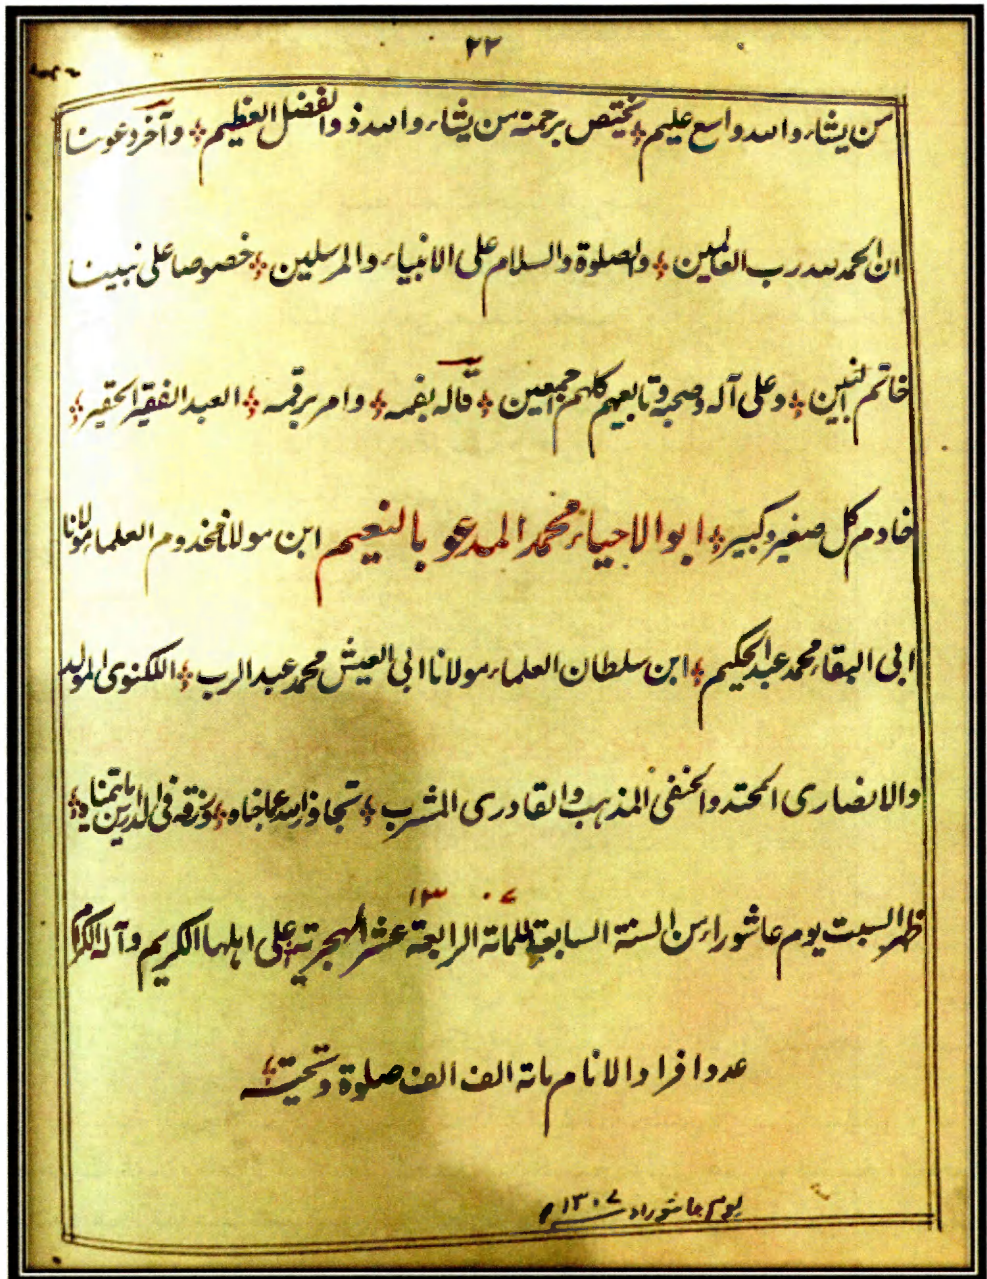 ٢٢
من يشاء والله واسع عليم يختص برحمته من يشاء والله ذو الفضل العظيم وآخر دعونا
ان الحمد لله رب العالمين والصلوة والسلام على الانبياء والمرسلين خصوصا على نبينا
خاتم النبين وعلى آله وصحبه وتابعيهم كلهم اجمعين قاله بفمه وامر برقمه العبد الفقير الحقير
خادم كل صغير وكبير ابو الاحياء محمد المدعو بالنعيم ابن مولانا مخدوم العلماء مولانا
ابى البقاء محمد عبد الحكيم ابن سلطان العلماء مولانا ابى العيش محمد عبد الرب اللكنوى المولد
والانصارى المحتد والحنفى المذهب والقادرى المشرب تجاوز الله عما جناه ورزقه فى الدارين ما يتمناه
١٣٠٧
ظهر السبت يوم عاشوراء من السنة السابعة للمائة الرابعة عشر الهجرية على اهلها الكريم وآله الكرام
عدد افراد الانام مائة الف الف صلوة وتحية
يوم عاشوراء ١٣٠٧ ه